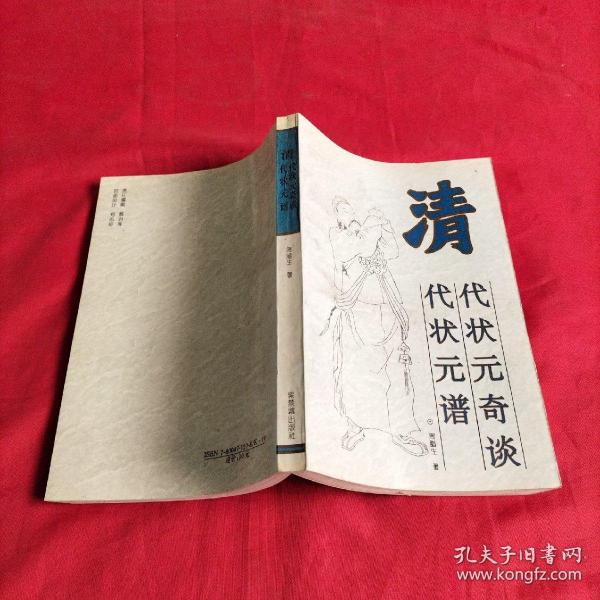 清
代状元奇谈
代状元谱
周腊生 著
清代状元奇谈
清代状元谱
周腊生 著
紫禁城出版社
孔夫子旧书网
www.kongfz.com